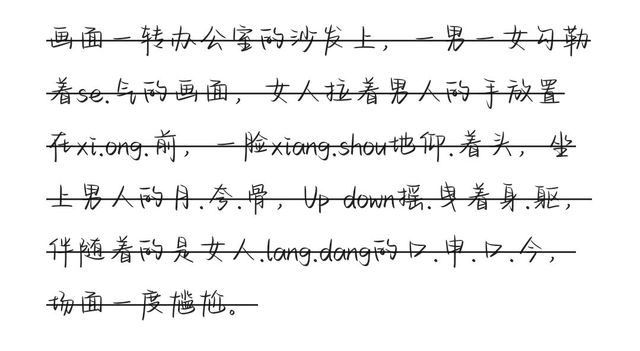 画面一转办公室的沙发上，一男一女勾勒
着se.气的画面，女人拉着男人的手放置
在xi.ong.前，一脸xiang.shou地仰.着头，坐
上男人的月.夸.骨，Up down摇.曳着身.躯，
伴随着的是女人.lang.dang的口.申.口.今，
场面一度尴尬。